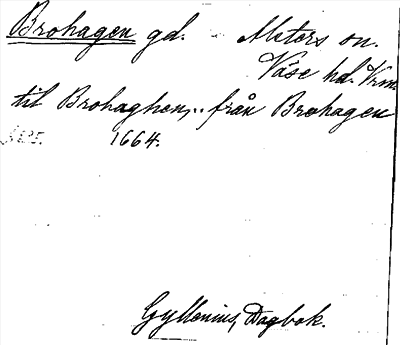 Brohagen gd. Meters on.
Väse hd. Vrm.
til Brohaghen,.. från Brohagen
1664.
Gyllenius, Dagbok.